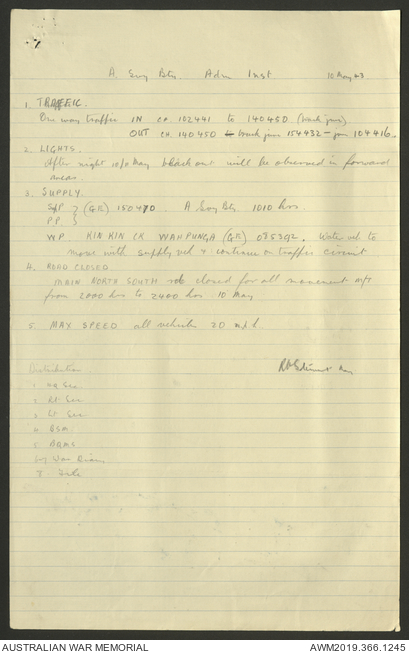 A. Svy Bty Adm Inst 10 May 43
1. TRAFFIC.
One way traffic IN ca. 102441 to 140450 (track junc)
OUT ca. 140450 track junc 154432 – junc 104416.
2. LIGHTS.
After night 10/11 May blackout will be observed in forward
areas.
3. SUPPLY
S/P (GR) 150470 A Svy Bty 1010 hrs.
P.P.
WP. KIN KIN CK WAHPUNGA (GR) 095392. Water veh to
move with supply veh & continue on traffic circuit
4. ROAD CLOSED
MAIN NORTH SOUTH rd closed for all movement M/T
from 2000 hrs to 2400 hrs 10 May
5. MAX SPEED all vehicles 20 m.p.h.
Distribution
1 HQ Sec
2 Rt. Sec
3 Lt Sec
4 BSM
5 BQMS
War Diary
8 File
AUSTRALIAN WAR MEMORIAL
AWM2019.366.1245